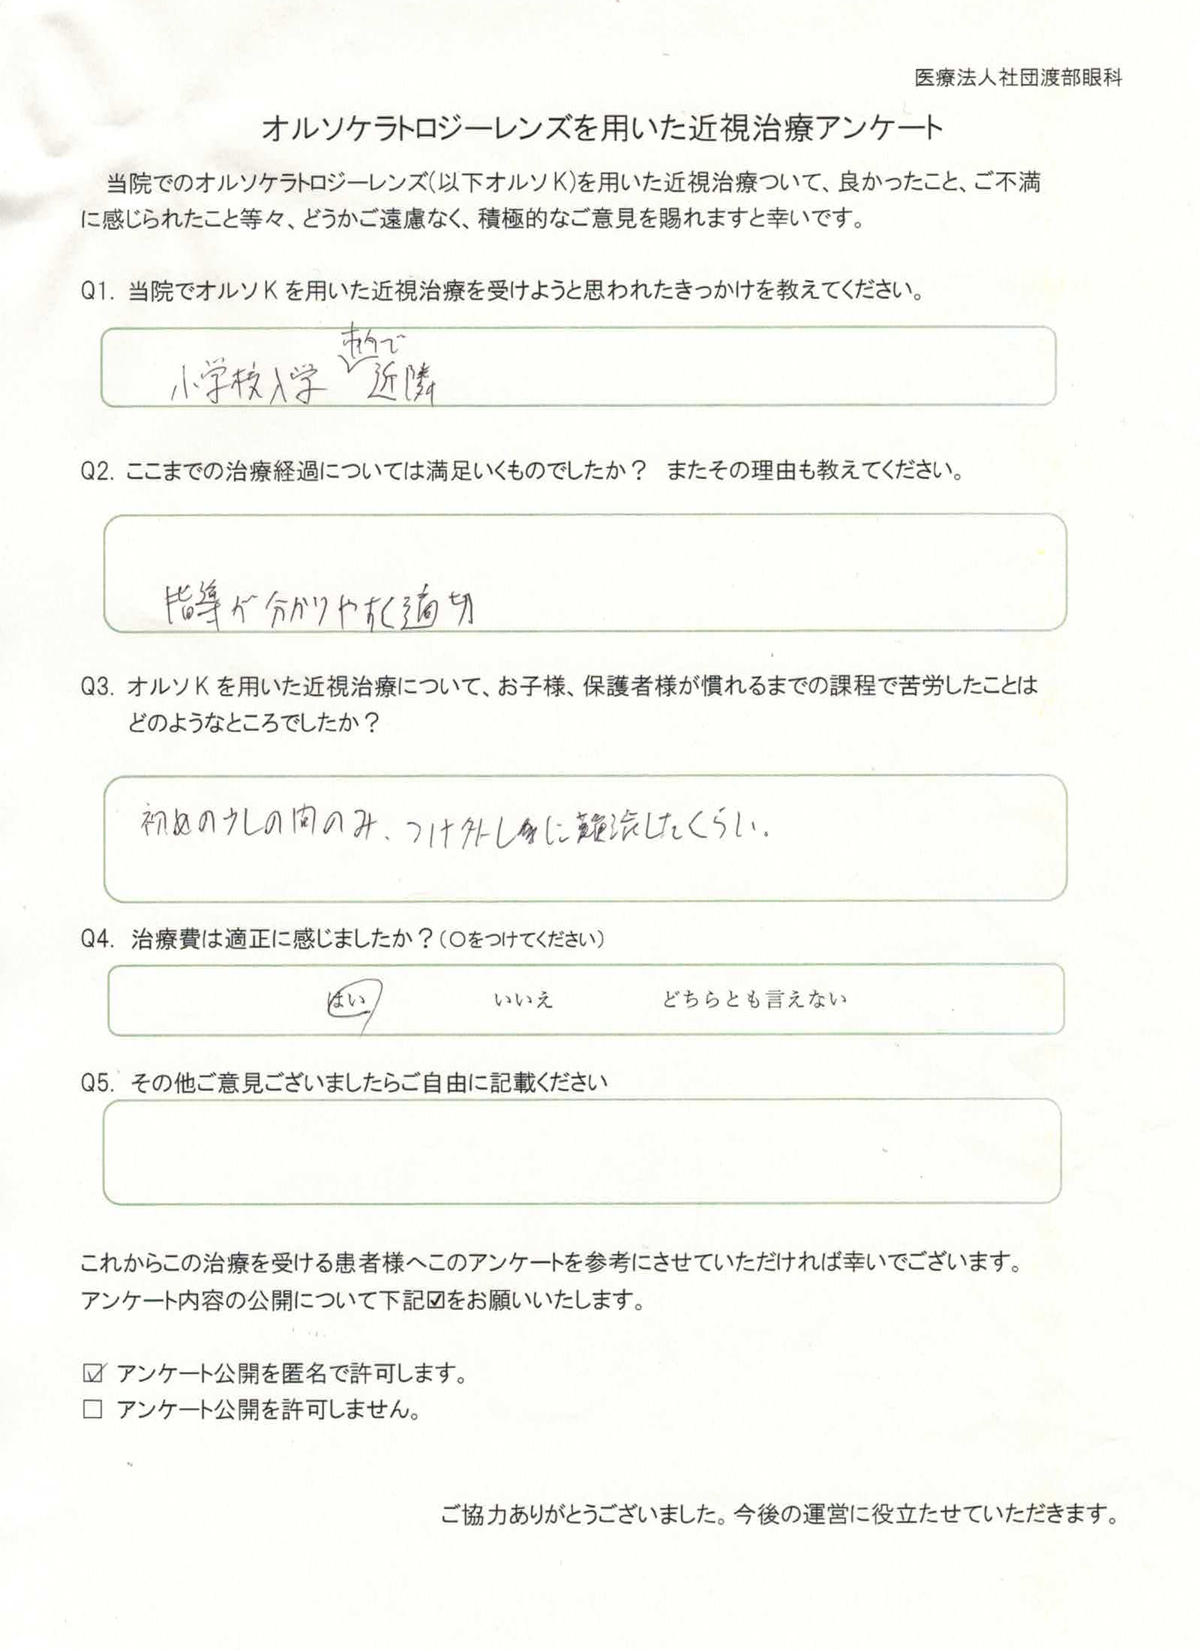 医療法人社団渡部眼科
オルソケラトロジーレンズを用いた近視治療アンケート
当院でのオルソケラトロジーレンズ(以下オルソK)を用いた近視治療ついて、良かったこと、ご不満
に感じられたこと等々、どうかご遠慮なく、積極的なご意見を賜れますと幸いです。
Q1. 当院でオルソKを用いた近視治療を受けようと思われたきっかけを教えてください。
小学校入学 近隣
Q2. ここまでの治療経過については満足いくものでしたか? またその理由も教えてください。
指導が分かりやすく適切
Q3. オルソKを用いた近視治療について、お子様、保護者様が慣れるまでの課程で苦労したことは
どのようなところでしたか?
初めの少しの間のみ、つけ外しに難渋したくらい。
Q4. 治療費は適正に感じましたか?(○をつけてください)
はい いいえ どちらとも言えない
Q5. その他ご意見ございましたらご自由に記載ください
これからこの治療を受ける患者様へこのアンケートを参考にさせていただければ幸いでございます。
アンケート内容の公開について下記☑をお願いいたします。
☑ アンケート公開を匿名で許可します。
□ アンケート公開を許可しません。
ご協力ありがとうございました。今後の運営に役立たせていただきます。